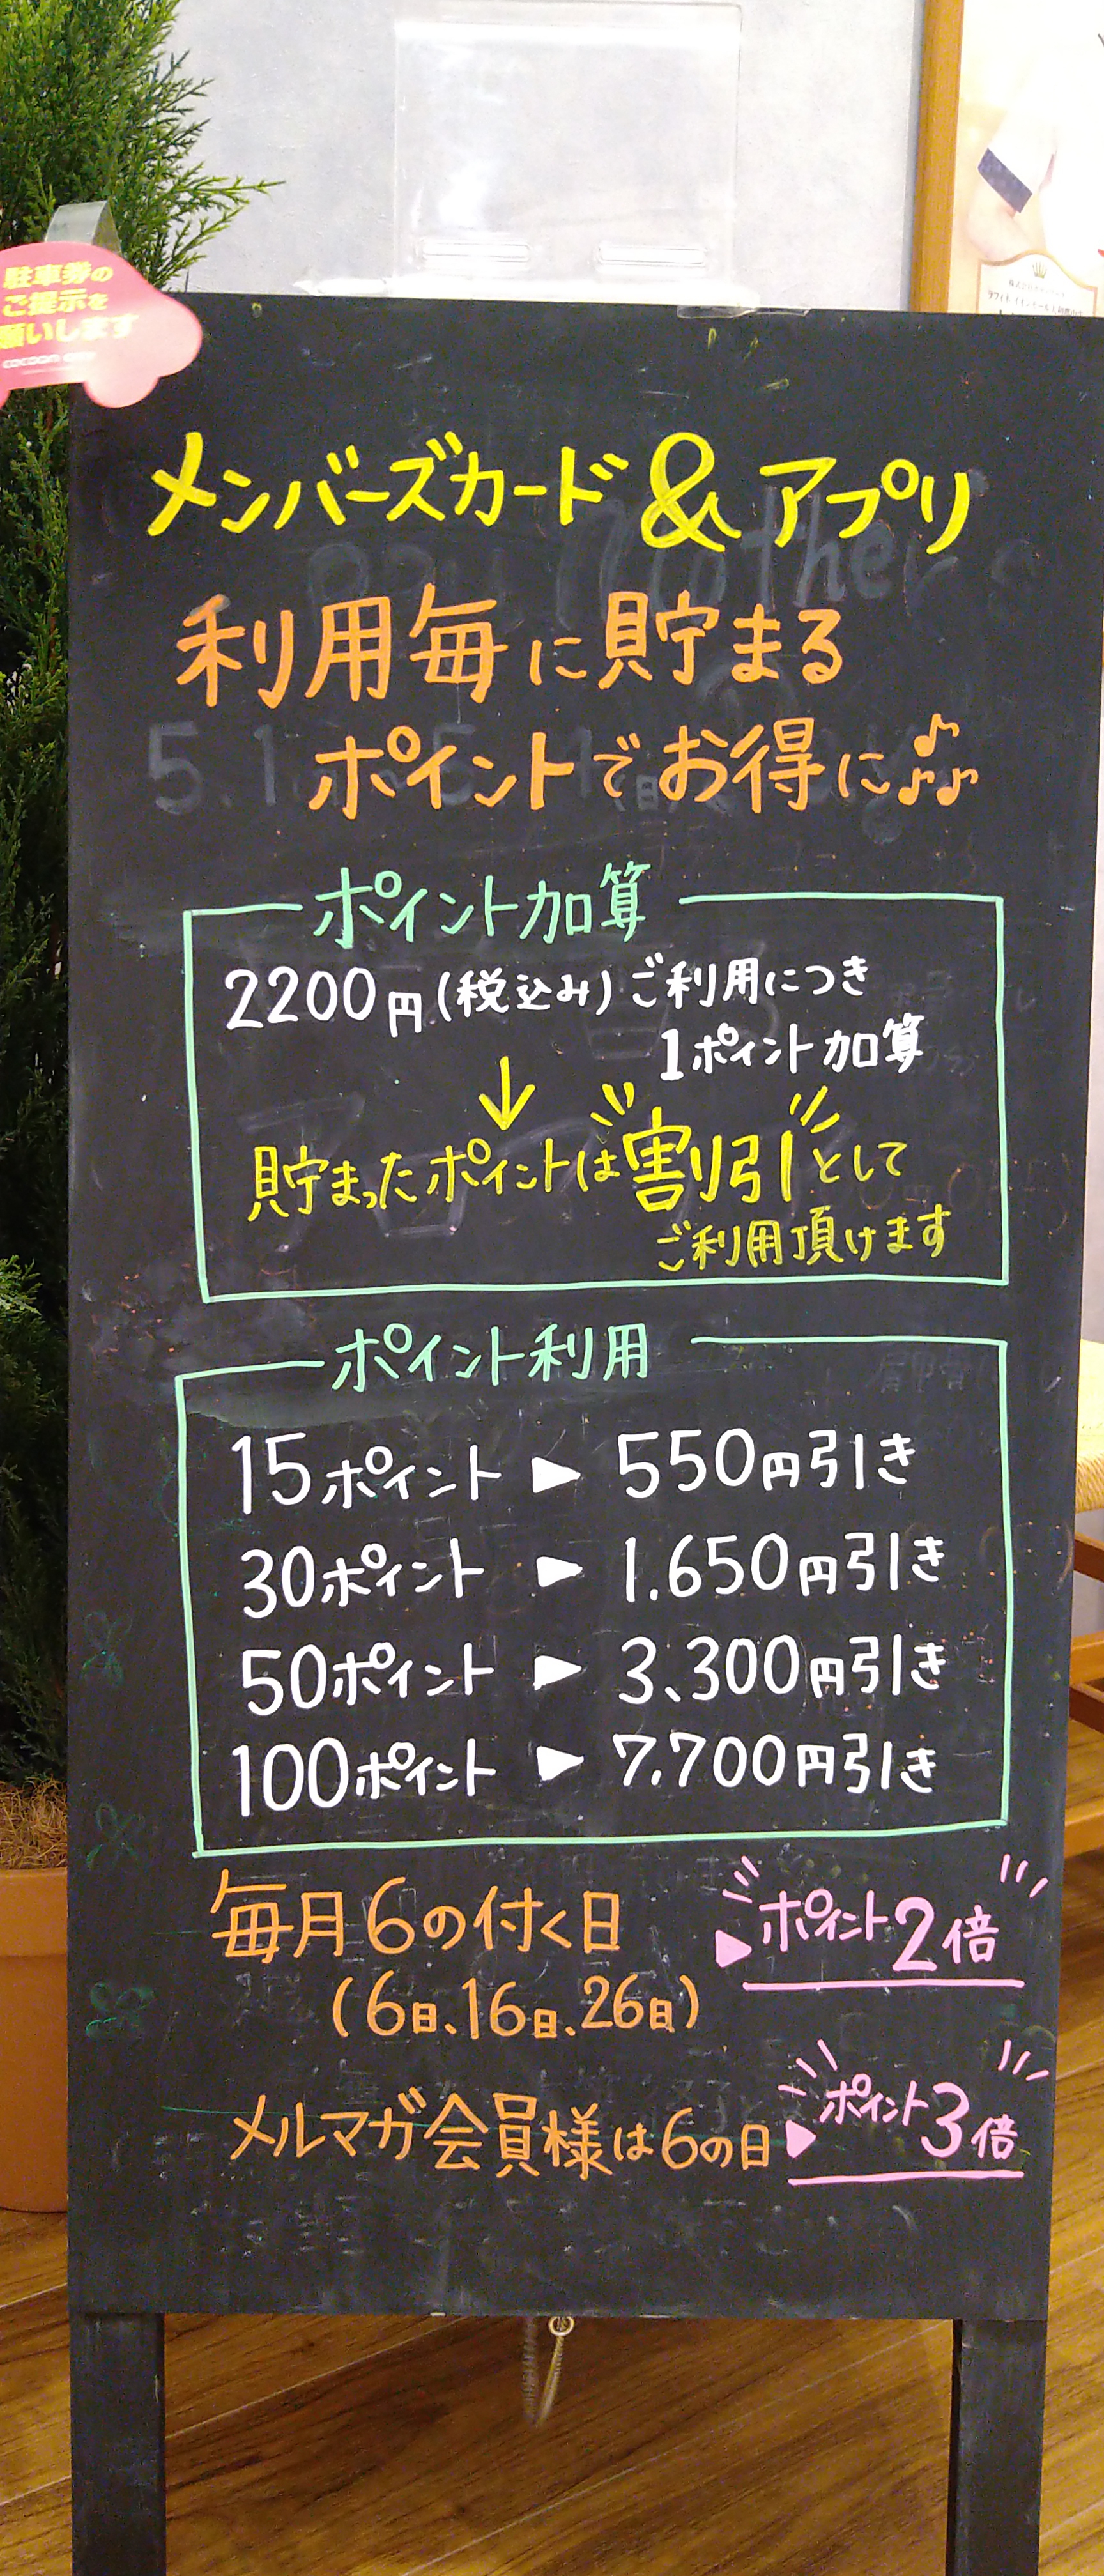 駐車券の
ご提示を
願いします
cocoon city
メンバーズカード&アプリ
利用毎に貯まる
ポイントでお得に♫
ポイント加算
2200円(税込み)ご利用につき
1ポイント加算
↓
貯まったポイントは割引として
ご利用頂けます
ポイント利用
15ポイント ▶ 550円引き
30ポイント ▶ 1.650円引き
50ポイント ▶ 3、300円引き
100ポイント ▶ 7.700円引き
毎月6の付く日 ▶ポイント2倍
(6日、16日、26日)
メルマガ会員様は6の日 ▶ポイント3倍